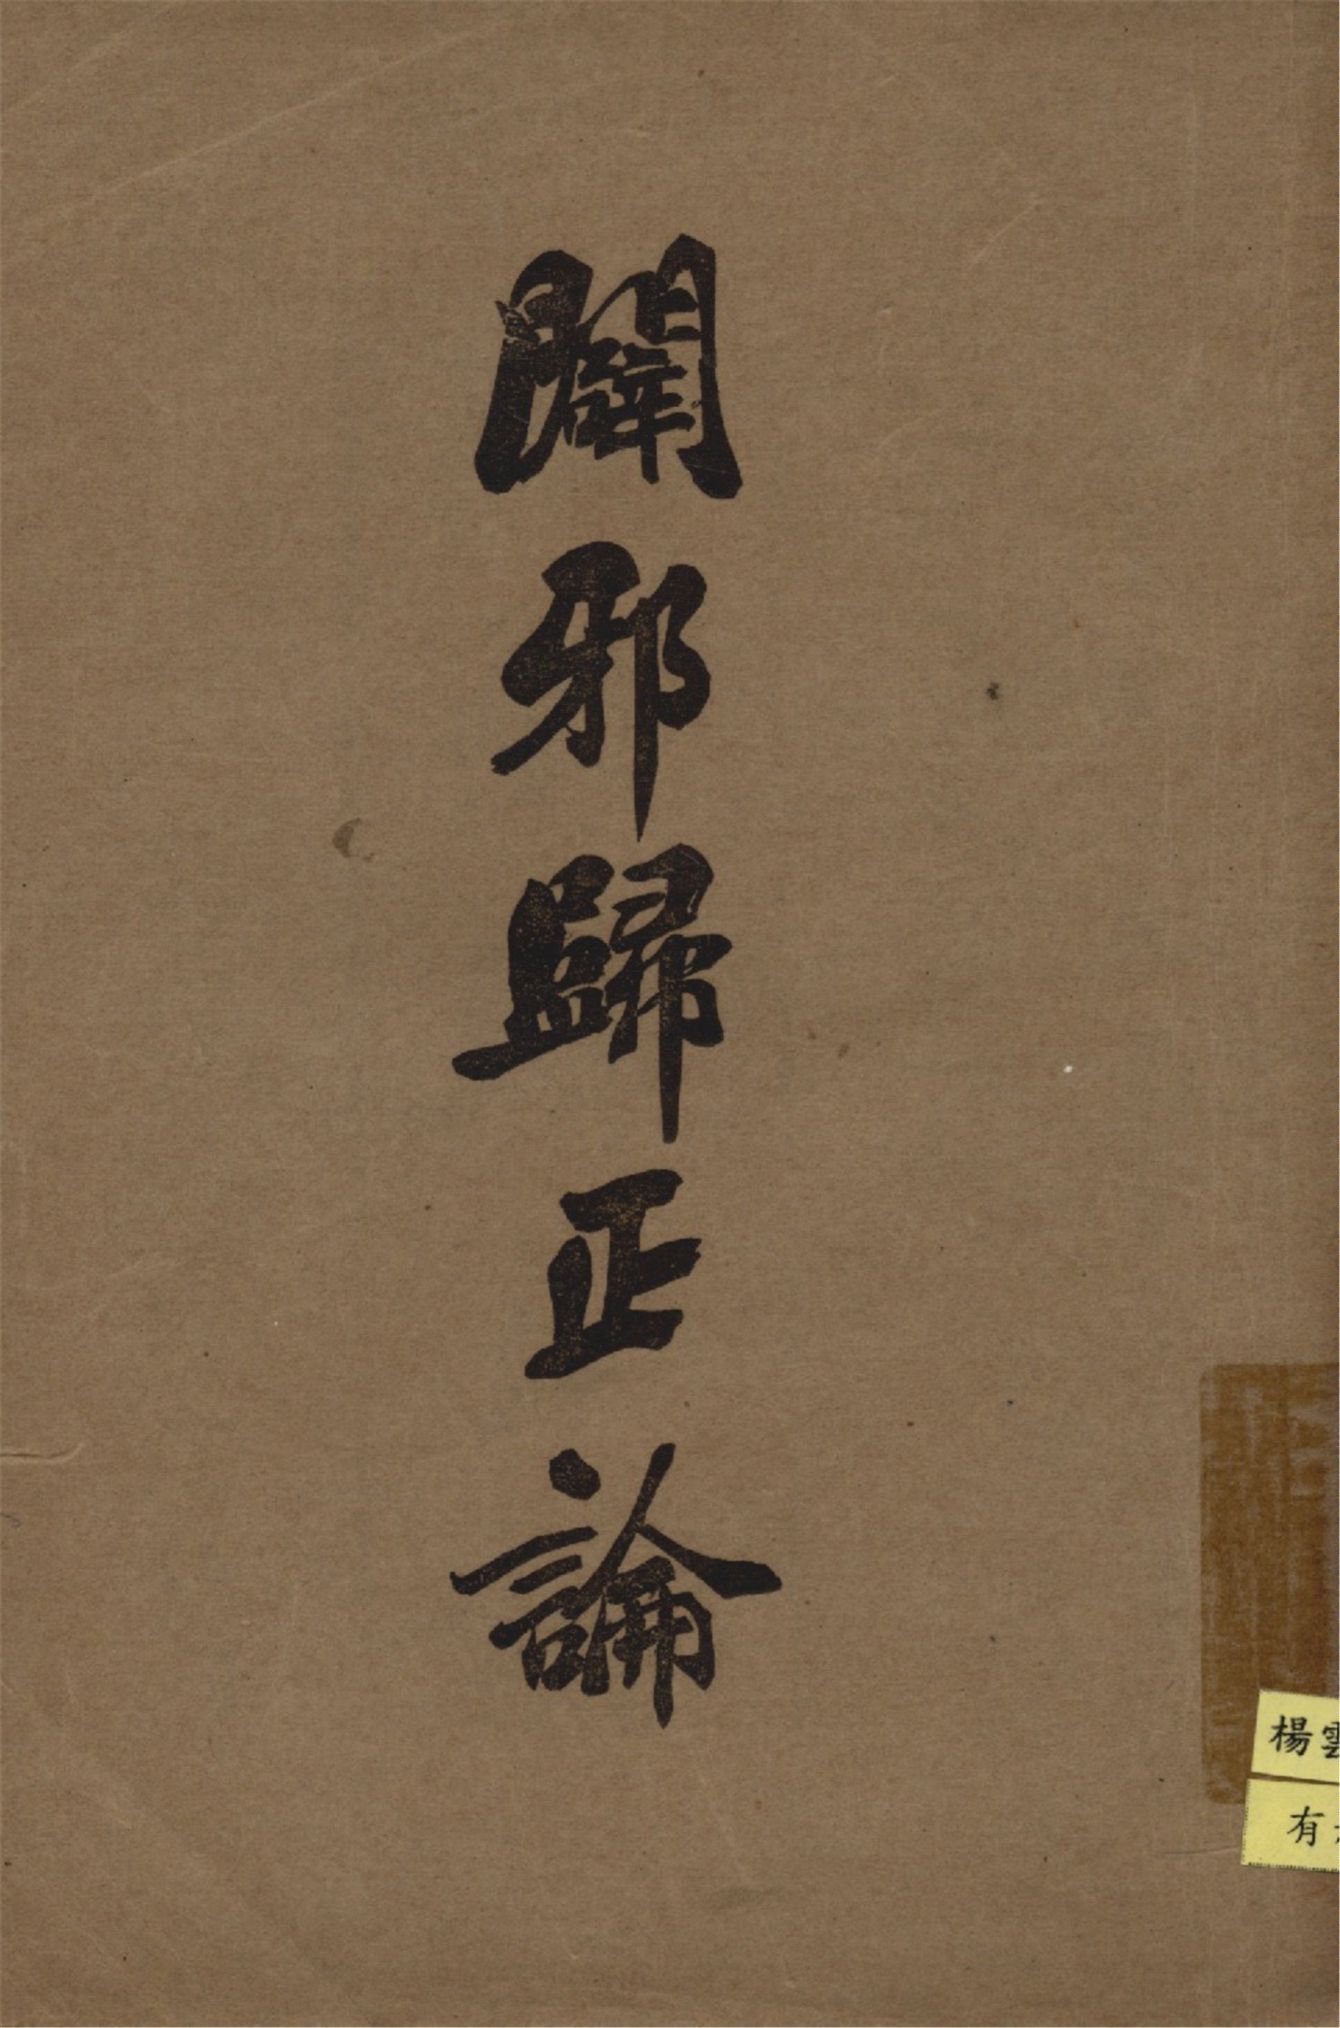 闢邪歸正論
楊雲
有